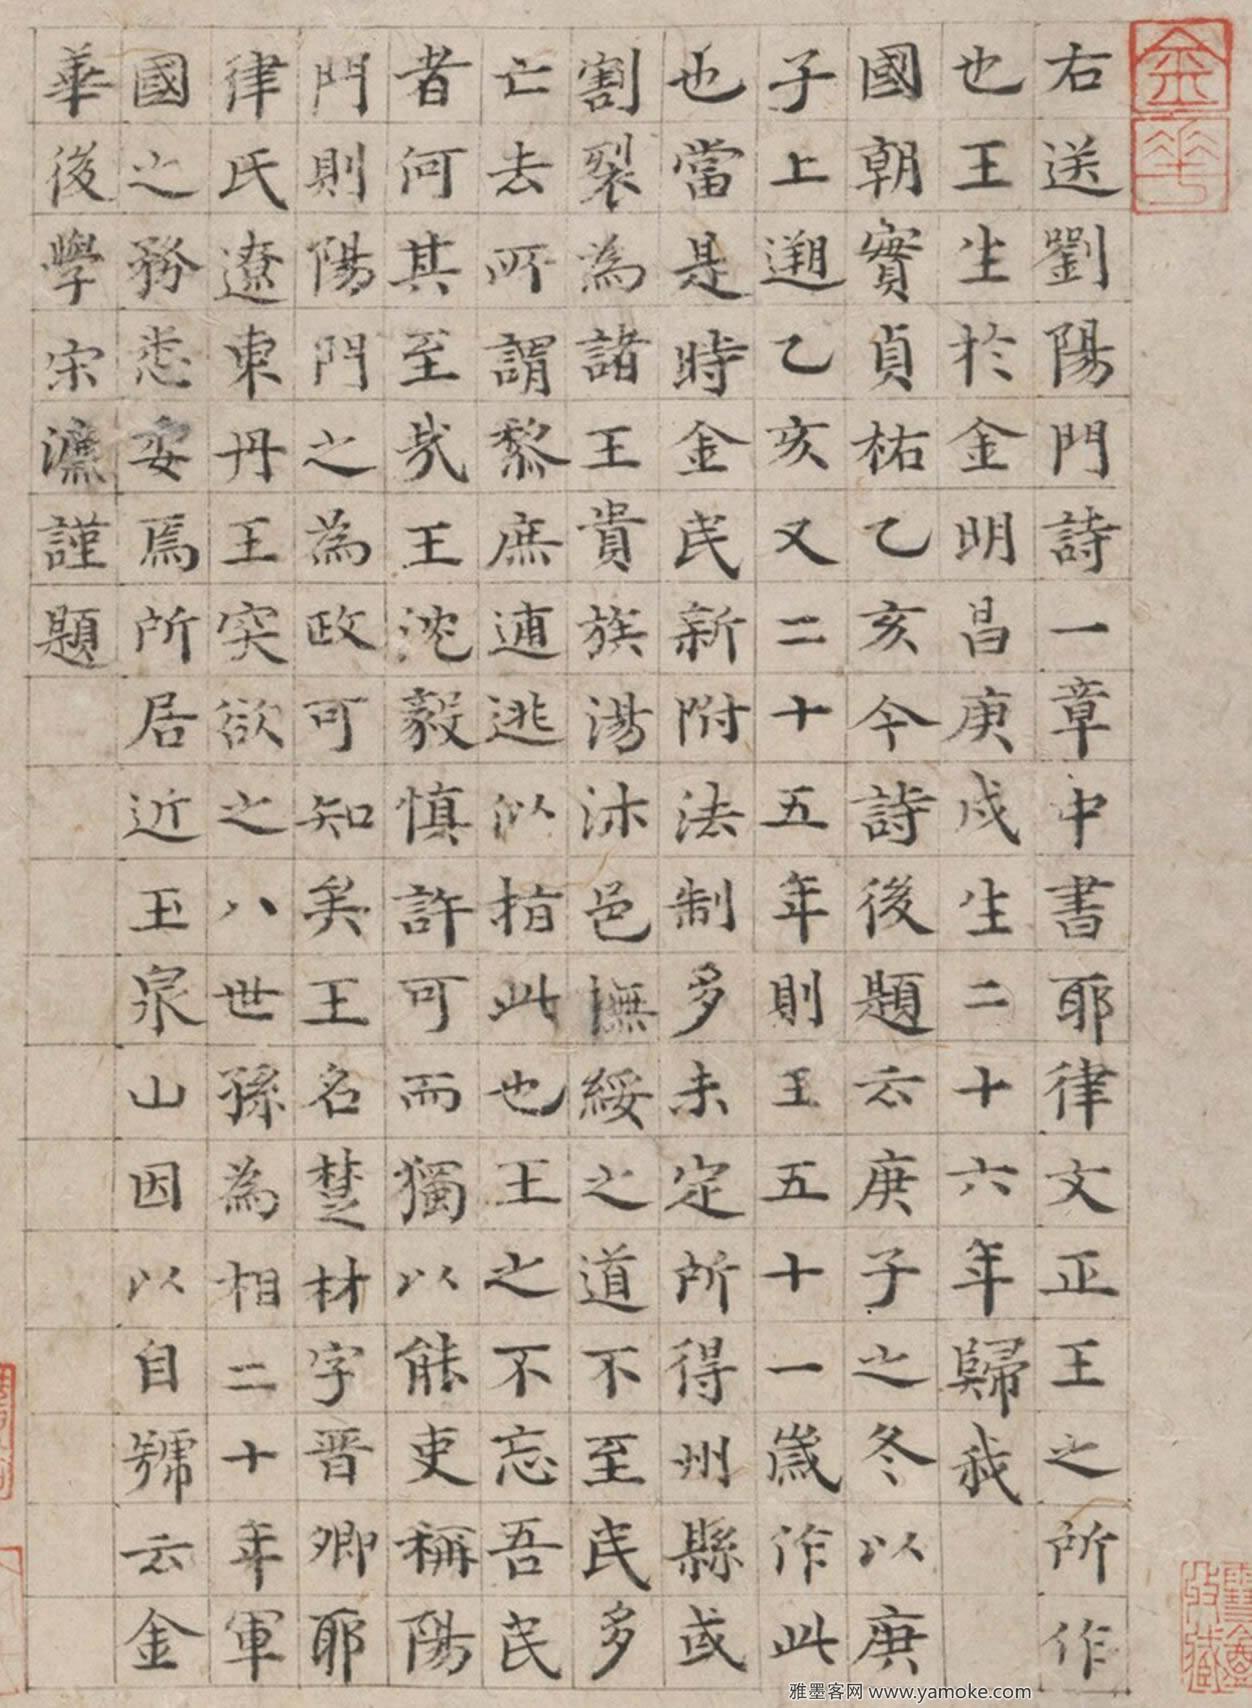 右送劉陽門詩一章中書耶律文正王之所作
也王生於金明昌庚戌生二十六年歸我
國朝實貞祐乙亥今詩後題云庚子之冬以庚
子上遡乙亥又二十五年則王五十一歲作此
也當是時金民新附法制多未定所得州縣或
割裂為諸王貴族湯沐邑撫綏之道不至民多
亡去所謂黎庶逋逃以指此也王之不忘吾民
者何其至哉王沈毅慎許可而獨以能吏稱陽
門則陽門之為政可知矣王名楚材字晉卿耶
律氏遼東丹王突欲之八世孫為相二十年軍
國之務悉安焉所居近玉泉山因以自號云金
華後學宋濂謹題
金華
雅墨客网 www.yamoke.com